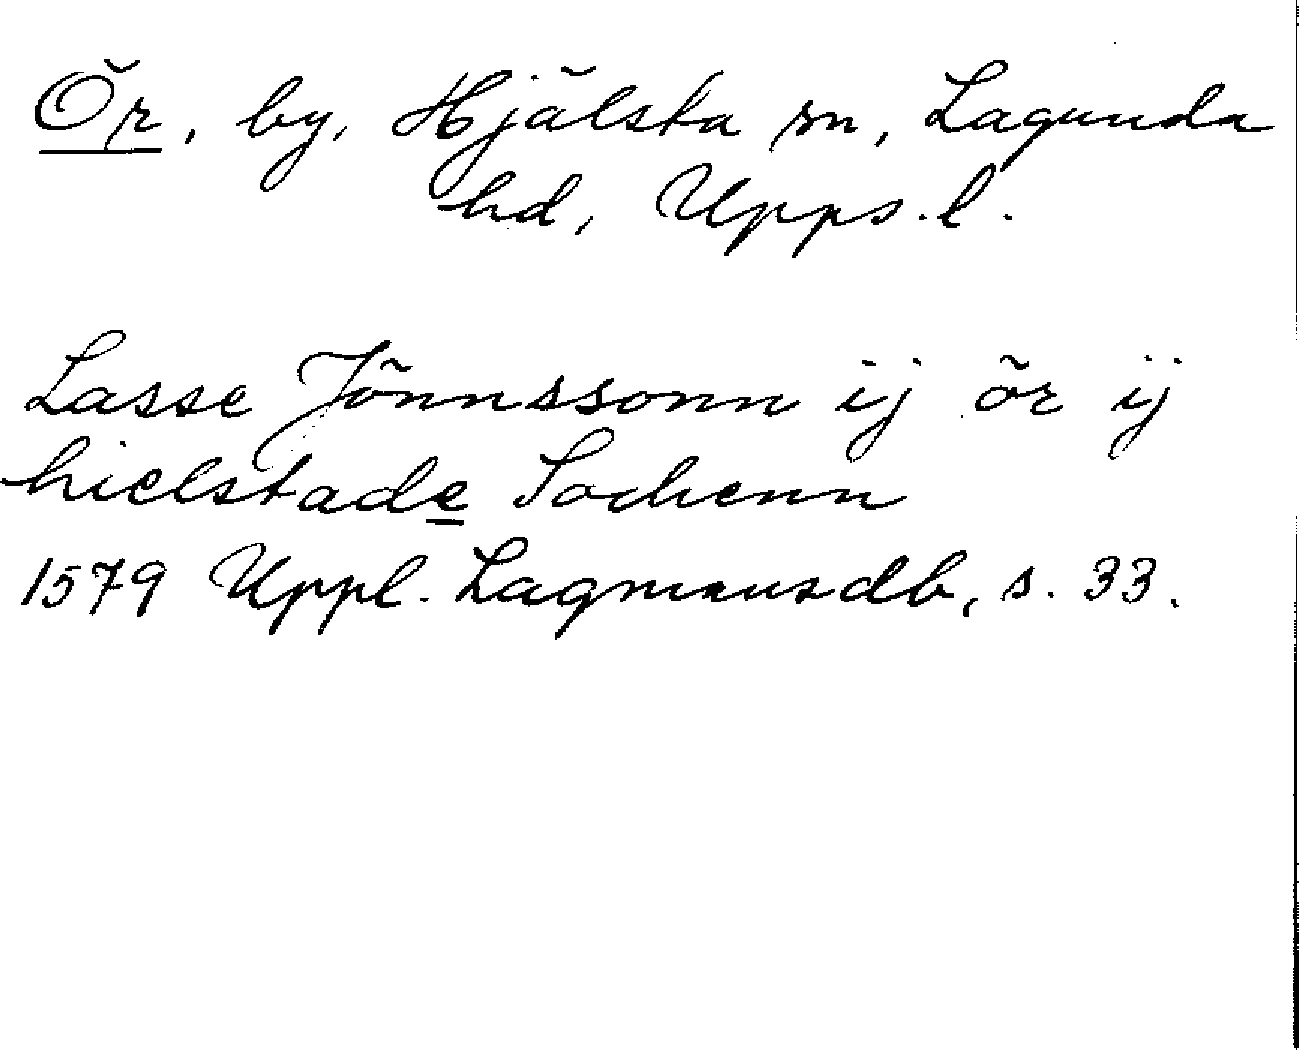 Ör, by, Hjälsta sn, Lagunda
hd, Upps. l.
Lasse Jönnssonn ij ör ij
hielstade Sochenn
1579 Uppl. Lagmansdb, s. 33.